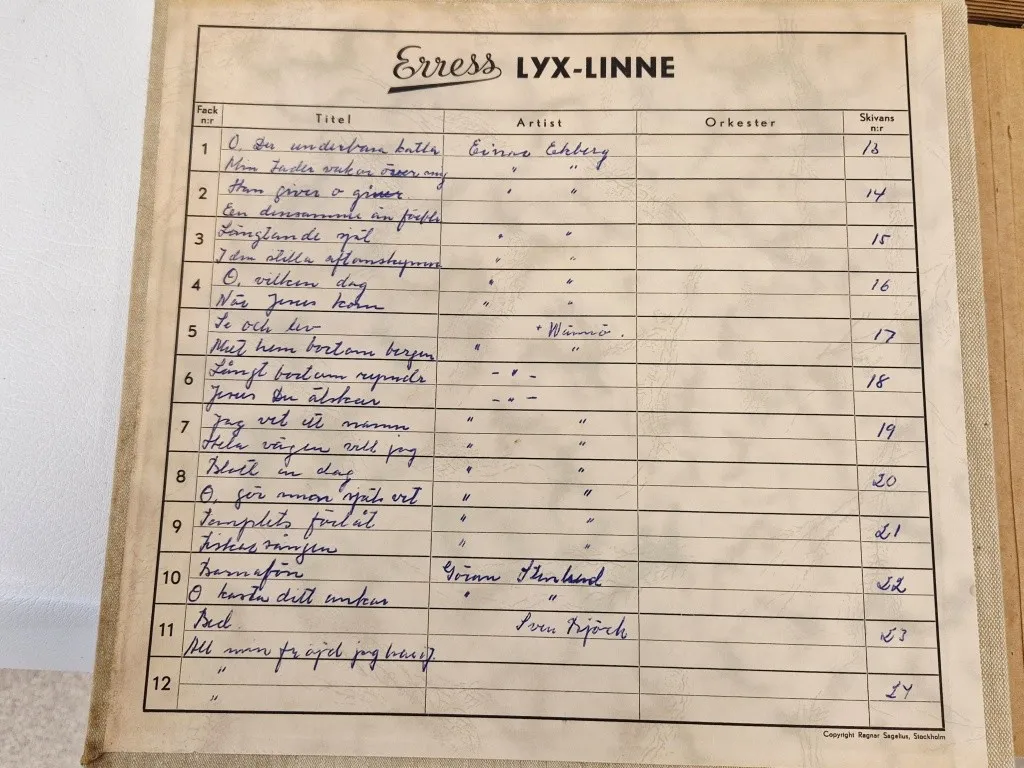 Erress LYX-LINNE
Fack n:r Titel Artist Orkester Skivans n:r
1 O, Du underbara källa Einar Ekberg 13
Min Fader vakar över mig " "
2 Han giver o giver " " 14
En densamme än
3 Längtande själ " " 15
I den stilla aftonskymn " "
4 O, vilken dag " " 16
När Jesus kom " "
5 Se och lev + Wärmö. 17
Mitt hem bortom bergen " "
6 Långt bortom - " - 18
Jesus Du älskar - " -
7 Jag vet ett namn " " 19
Hela vägen vill jag " "
8 Blott en dag " " 20
O, gör min själ vit " "
9 Templets förlåt " " 21
Fiskarsången " "
10 Barnatön Göran Stenlund 22
O kasta ditt ankar " "
11 Bed. Sven Björk 23
All min fröjd jag
"
12 24
"
Copyright Ragnar Sagelius, Stockholm